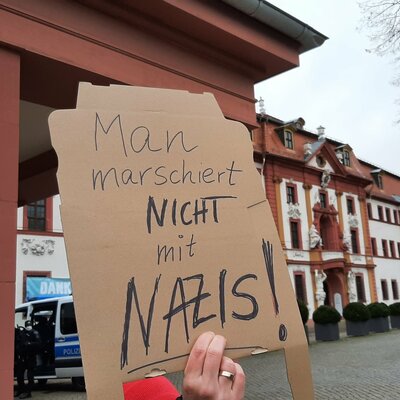 Man
marschiert
NICHT
mit
NAZIS!
DANK
POLIZEI